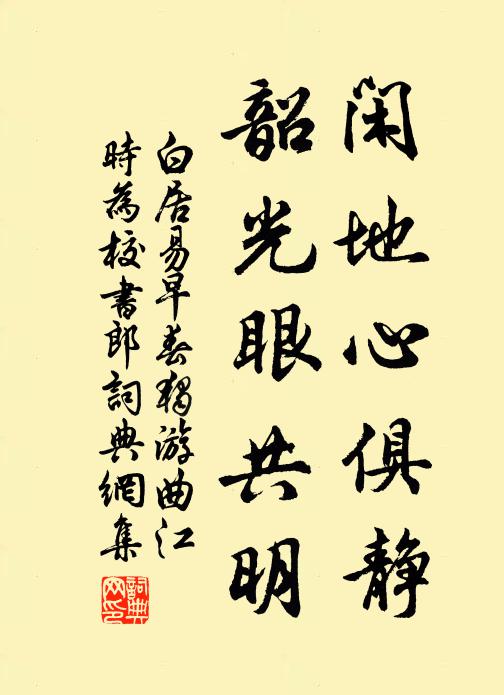 闲地心俱静
韶光眼共明
白居易早春独游曲江
時為校書郎詞典網集
詞典网印